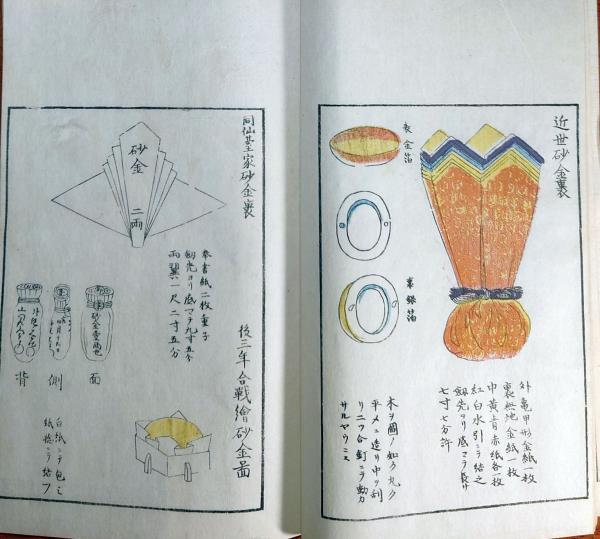 近世砂金裹
表金箔
裏銀箔
外亀甲形金紙一枚
裏無地金紙一枚
中黄青赤紙各一枚
紅白水引ニテ結之
劔先ヨリ底マテ長サ
七寸七分許
木ヲ圖ノ如ク丸ク
平メニ造リ中ヲ刮
リニツ合釘ニテ動カ
サルヤウニス
同仙臺家砂金裹
砂金
二両
奉書紙二枚重子
劔先ヨリ底マテ九寸五分
両翼一尺二寸五分
後三年合戦繪砂金圖
砂金壹両包
面
側
背
白紙ニテ包ミ
紙捻ニテ結フ